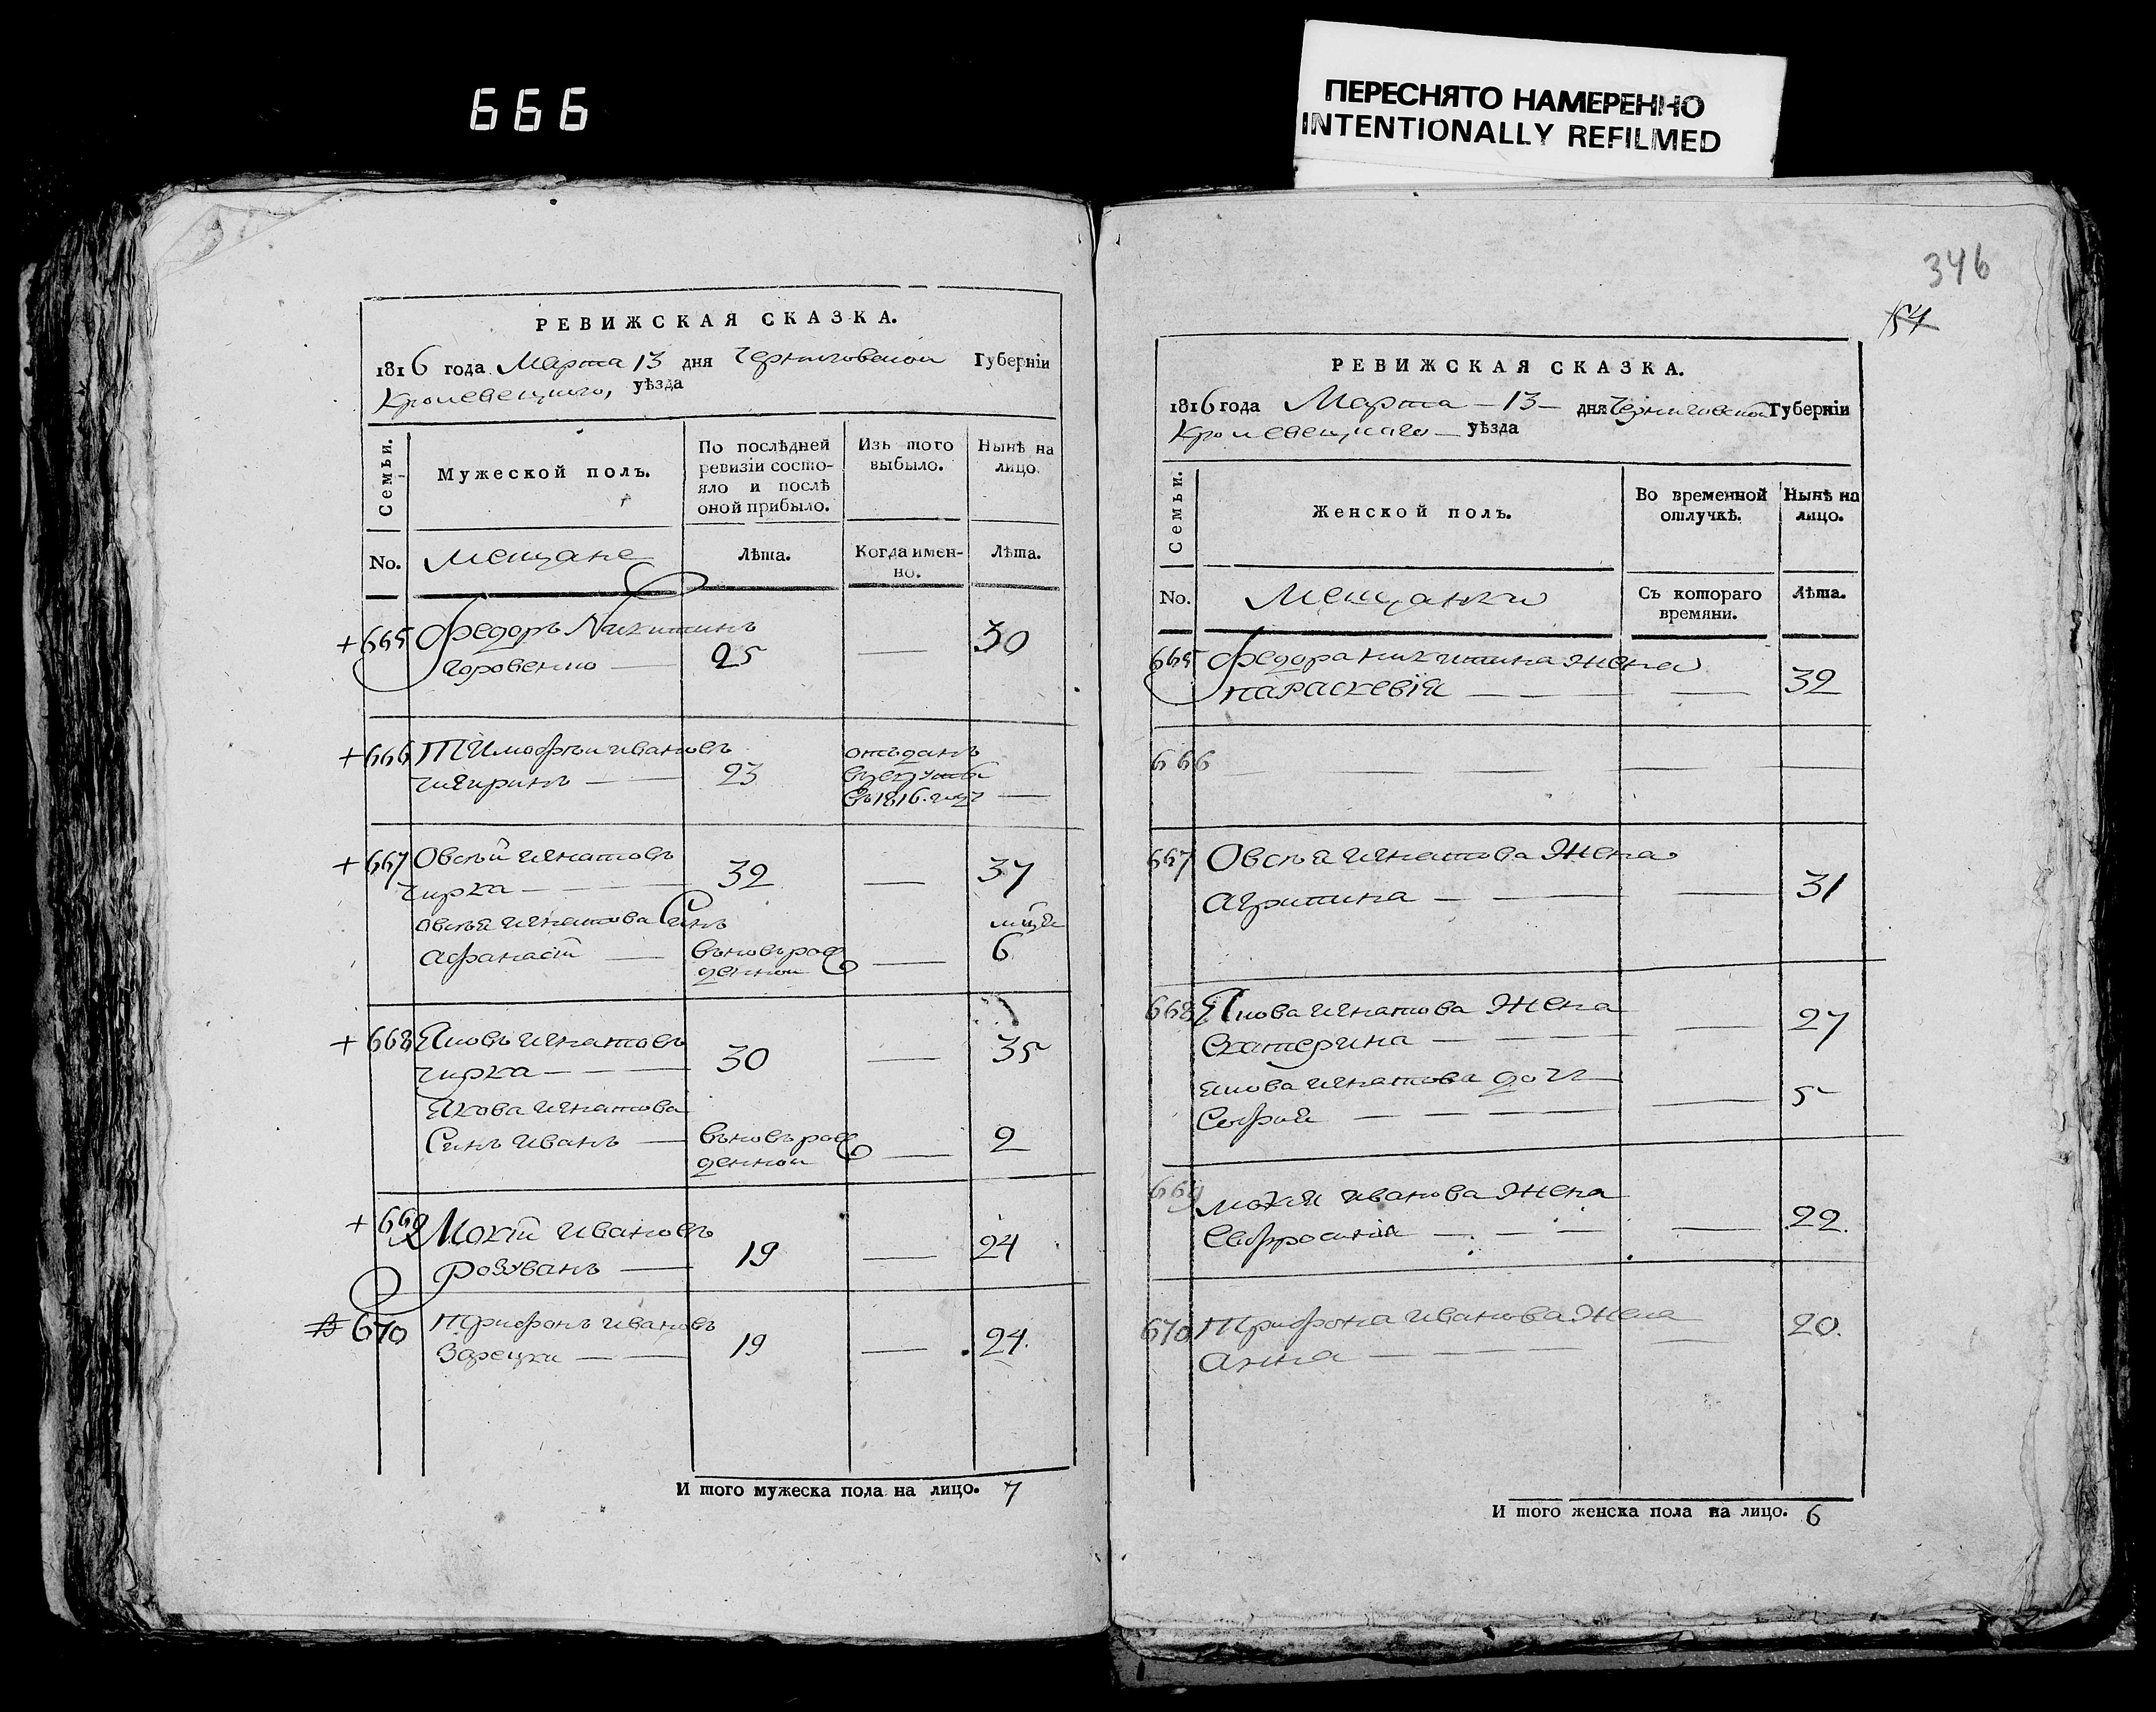 666
ПЕРЕСНЯТО НАМЕРЕННО
INTENTIONALLY REFILMED
РЕВИЖСКАЯ СКАЗКА.
1816 года Марта 13 дня Черниговской Губерніи
Кролевецкого, уѣзда
Семьи.
Мужеской полъ.
По послѣдней
ревизіи состо-
яло и послѣ
оной прибыло.
Изъ того
выбыло.
Нынѣ на
лицо.
No.
мещане
Лѣта.
Когда имен-
но.
Лѣта.
+665 Федоръ Никитинъ
25 — 30
+666 Тимофѣй Ивановъ
чигиринъ — 23
отъданъ
въ 1816. году —
+667 Овсѣй Игнатовъ
чирка — 32 — 37
Овсѣя Игнатова Синъ
мцы
афанасій — вьновьрож
денной — 6
+668 Яковъ Игнатовъ
чирка — 30 — 35
Якова Игнатова
Синъ Иванъ — вьновьрож
денной — 2
+669 Мокій Ивановъ
розуванъ — 19 — 24
670 Трифонъ Ивановъ
Зарецки — 19 — 24.
И того мужеска пола на лицо. 7
346
154
РЕВИЖСКАЯ СКАЗКА.
1816 года Марта — 13 — дня Черниговской Губерніи
Кролевецкаго — уѣзда
Семьи.
Женской полъ.
Во временной
отлучкѣ.
Нынѣ на
лицо.
No.
Мещанки
Съ котораго
времяни.
Лѣта.
665 Федора Никитина Жена
параскевія — — — 32
666 — — — — —
667 Овсѣя Игнатова Жена
агрипина — — — 31
668 Якова Игнатова Жена
Екатерина — — — 27
Якова Игнатова дочь
София — — — 5
669 мокия Иванова Жена
Евфросиния — — — 22.
670 Трифона Иванова Жена
анна — — — 20.
И того женска пола на лицо. 6